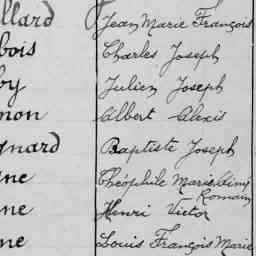 llard Jean Marie François
bois Charles Joseph
by Julien Joseph
mon Albert Alexis
gnard Baptiste Joseph
gne Théophile Marie Aimé
Romain
ne Henri Victor
ne Louis François Marie